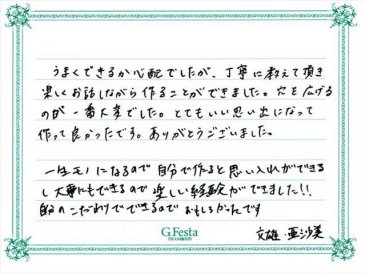 うまくできるか心配でしたが、丁寧に教えて頂き
楽しくお話しながら作ることができました。穴を広げる
のが一番大変でした。とてもいい思い出になって
作って良かったです。ありがとうございました。
一生モノになるので自分で作ると思い入れができる
し大事にもできるので楽しい経験ができました!!
自分のこだわりでできるのでおもしろかったです
G.Festa
DIAMOND
文雄・亜沙美